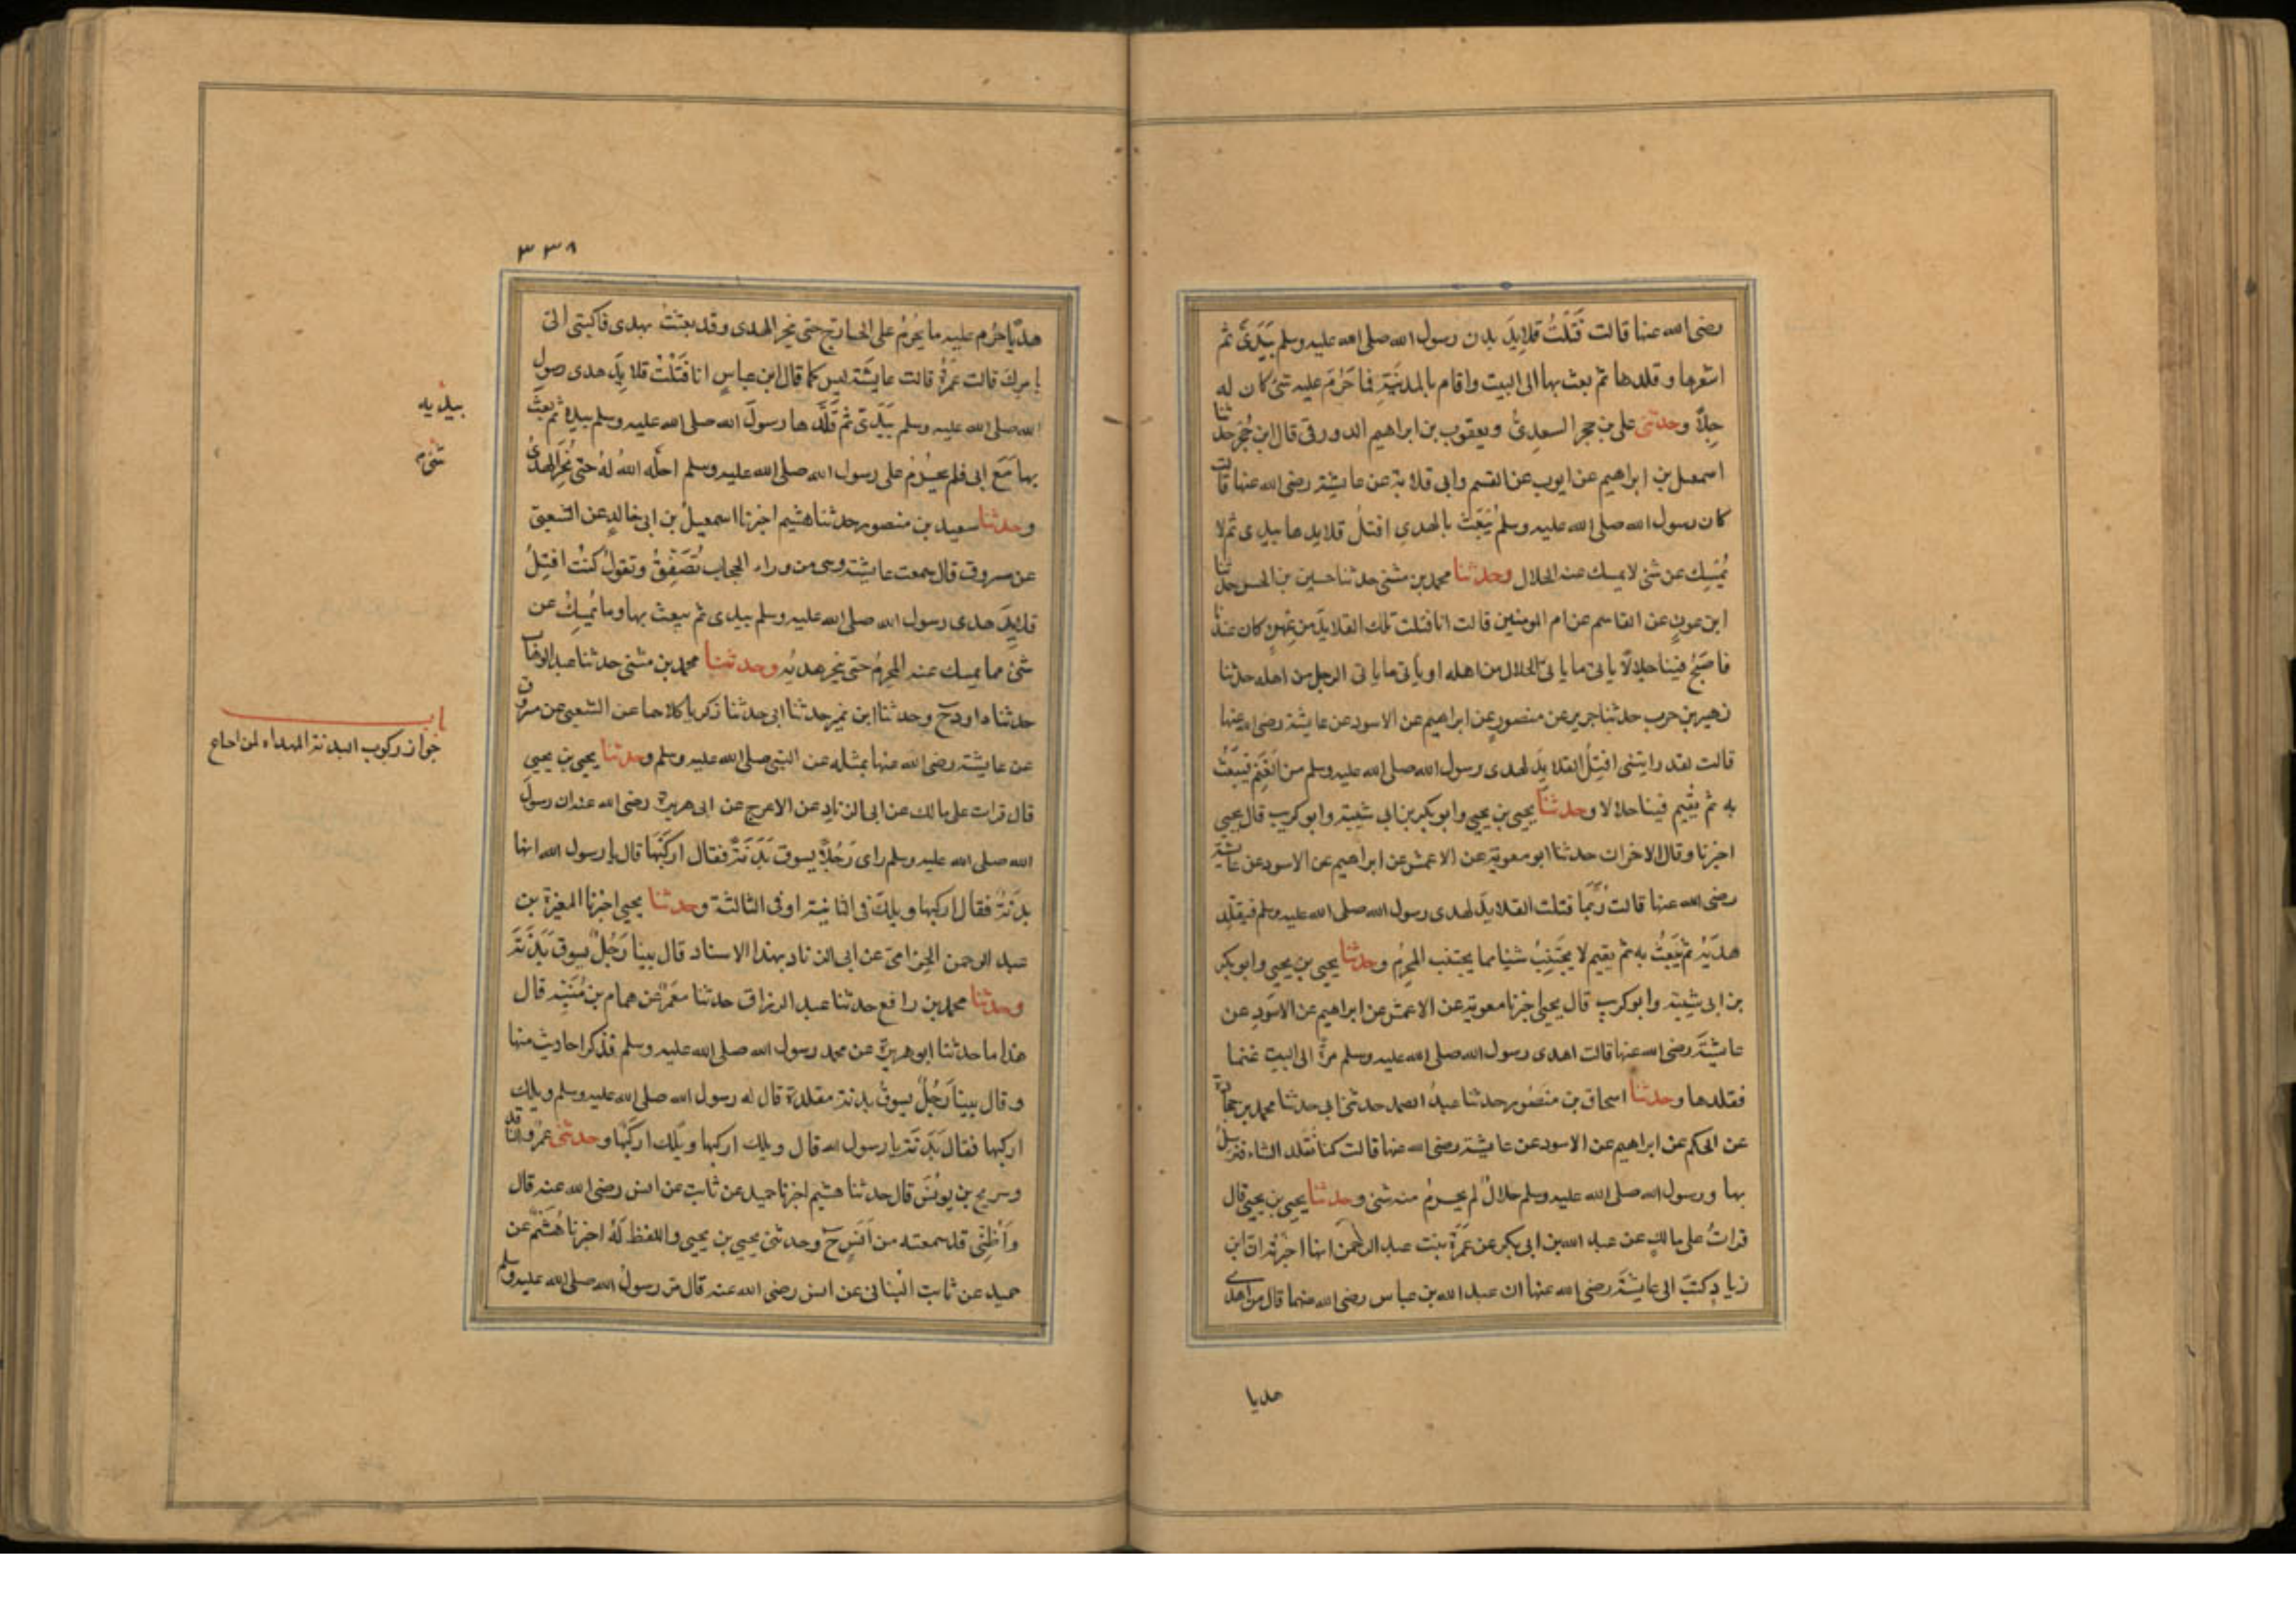 رضى الله عنها قالت فَتَلْتُ قلايِدَ بدن رسول الله صلى الله عليه وسلم بيَدَىَّ ثم
اشعرها وقلدها ثم بعث بها الى البيت واقام بالمدينَةِ فما حَرُمَ عليه شئ كان له
حِلاًّ وحدثنى على بن حجر السعدِىُّ ويعقوب بن ابراهيم الدورقى قال ابن حُجْر حدثنا
اسمعيل بن ابراهيم عن ايوب عن القسم وابى قلابة عن عايشة رضى الله عنها قالت
كان رسول الله صلى الله عليه وسلم يَبْعَثُ بالهدىِ افتلُ قلايدها بيدى ثم لا
يُمْسِك عن شئ لا يمسك عنه الحلال وحدثنا محمد بن مثنى حدثنا حسين بن الحسن حدثنا
ابن عونٍ عن القاسم عن ام المومنين قالت انا فتلت تلك القلايدَ من عِهْنٍ كان عندنا
فاصبَحَ فينا حلالاً ياتى ما ياتى الحلال من اهله او يأتى ما ياتى الرجل من اهله حدثنا
زهير بن حرب حدثنا جرير عن منصورٍ عن ابراهيم عن الاسود عن عايشة رضى الله عنها
قالت لقد رايتنى افتِلُ القلايدَ لهدى رسول الله صلى الله عليه وسلم من الغَنَمِ فيَبْعَثُ
به ثم يُقِيم فينا حلالا وحدثنا يحيى بن يحيى وابو بكر بن ابى شيبة وابو كريب قال يحيى
اخبرنا وقال الاخران حدثنا ابو معوية عن الاعمش عن ابراهيم عن الاسود عن عايشة
رضى الله عنها قالت رُبَّمَا فتلت القلايدَ لهدى رسول الله صلى الله عليه وسلم فيقلد
هدْيَهُ ثم يَبْعَثُ به ثم يقيم لا يجْتَنِبُ شيئا مما يجتنب المحرِمُ وحدثنا يحيى بن يحيى وابو بكر
بن ابى شيبة وابو كريب قال يحيى اخبرنا معوية عن الاعمش عن ابراهيم عن الاسود عن
عايشَةَ رضى الله عنها قالت اهدى رسول الله صلى الله عليه وسلم مرَّةً الى البيت غنما
فقلدها وحدثنا اسحاق بن منصُور حدثنا عبدُ الصمد حدثنى ابى حدثنا محمد بن جحادة
عن الحكم عن ابراهيم عن الاسود عن عايشة رضى الله عنها قالت كنا نُقَلد الشاء فنرسِلُ
بها ورسول الله صلى الله عليه وسلم حلالٌ لم يحرُمْ منه شئ وحدثنا يحيى بن يحيى قال
قراتُ على مالكٍ عن عبد الله بن ابى بكر عن عَمْرَةَ بنت عبد الرحمن انها اخبرته ان ابن
زيادٍ كتبَ الى عايشَةَ رضى الله عنها ان عبد الله بن عباس رضى الله عنهما قال من اهدى
هديا
٣٣٨
هديًا حرُم عليه ما يحْرُمُ على الحاج حتى ينحر الهدى وقد بعثتُ بهدى فاكتبى الىَّ
بامرك قالت عَمْرَةُ قالت عايشَة ليس كما قال ابن عباسٍ انا فَتَلْتُ قلايدَ هدى رسول
الله صلى الله عليه وسلم بيَدَىَّ ثم قَلَّدَها رسولُ الله صلى الله عليه وسلم بيده ثم بعثَ
بها مَعَ ابى فلم يحْرُمْ على رسول الله صلى الله عليه وسلم احلَّه اللهُ لهُ حتى نُحِرَ الهدىُ
وحدثنا سعيد بن منصور حدثنا هشيم اخبرنا اسمعيلُ بن ابى خالدٍ عن الشعبى
عن مسروق قال سمعت عايشة وهى من وراء الحجاب تُصَفِّقُ وتقولُ كنتُ افتِلُ
قلايِدَ هدى رسول الله صلى الله عليه وسلم بيدى ثم يبعث بها وما يُمْسِكُ عن
شئ مما يمسك عنه المحرِمُ حتى ينحر هديُه وحدثنا محمد بن مثنى حدثنا عبد الوهاب
حدثنا داود ح وحدثنا ابن نمير حدثنا ابى حدثنا زكريا كلاهما عن الشعبى عن مسروق
عن عايشة رضى الله عنها بمثله عن النبى صلى الله عليه وسلم وحدثنا يحيى بن يحيى
قال قرات على مالك عن ابى الزنادِ عن الاعرج عن ابى هريرة رضى الله عنه ان رسولَ
الله صلى الله عليه وسلم راى رَجُلًا يسوق بَدَنَةً فقال اركَبْهَا قال يا رسول الله انها
بدَنَةٌ فقال اركبها ويلكَ فى الثانية او فى الثالثة وحدثنا يحيى اخبرنا المغيرة بن
عبد الرحمن الحِزَامىّ عن ابى الزناد بهذا الاسناد قال بينا رَجُلٌ يسوق بَدَنَةً
وحدثنا محمد بن رافع حدثنا عبد الرزاق حدثنا معْمَرٌ عن همام بن مُنَبِّه قال
هذا ما حدثنا ابو هريرة عن محمد رسول الله صلى الله عليه وسلم فذكر احاديث منها
وقال بينا رَجُلٌ يسوقُ بدنة مقلدة قال له رسول الله صلى الله عليه وسلم ويلك
اركبها فقال بَدَنَة يا رسول الله قال ويلك اركبها ويلك اركَبْها وحدثنى عمرٌو الناقد
وسريج بن يونسَ قال حدثنا هشيم اخبرنا حميد عن ثابت عن انس رضى الله عنه قال
وَأَظُنُّنِى قد سمعته من اَنَسٍ ح وحدثنى يحيى بن يحيى واللفظ لَهُ اخبرنا هُشَيْمٌ عن
حميد عن ثابت البُنانى عن انس رضى الله عنه قال مرَّ رسولُ الله صلى الله عليه وسلم
بيديه
باب
جواز ركوب البدنة المهداه لمن احتاج